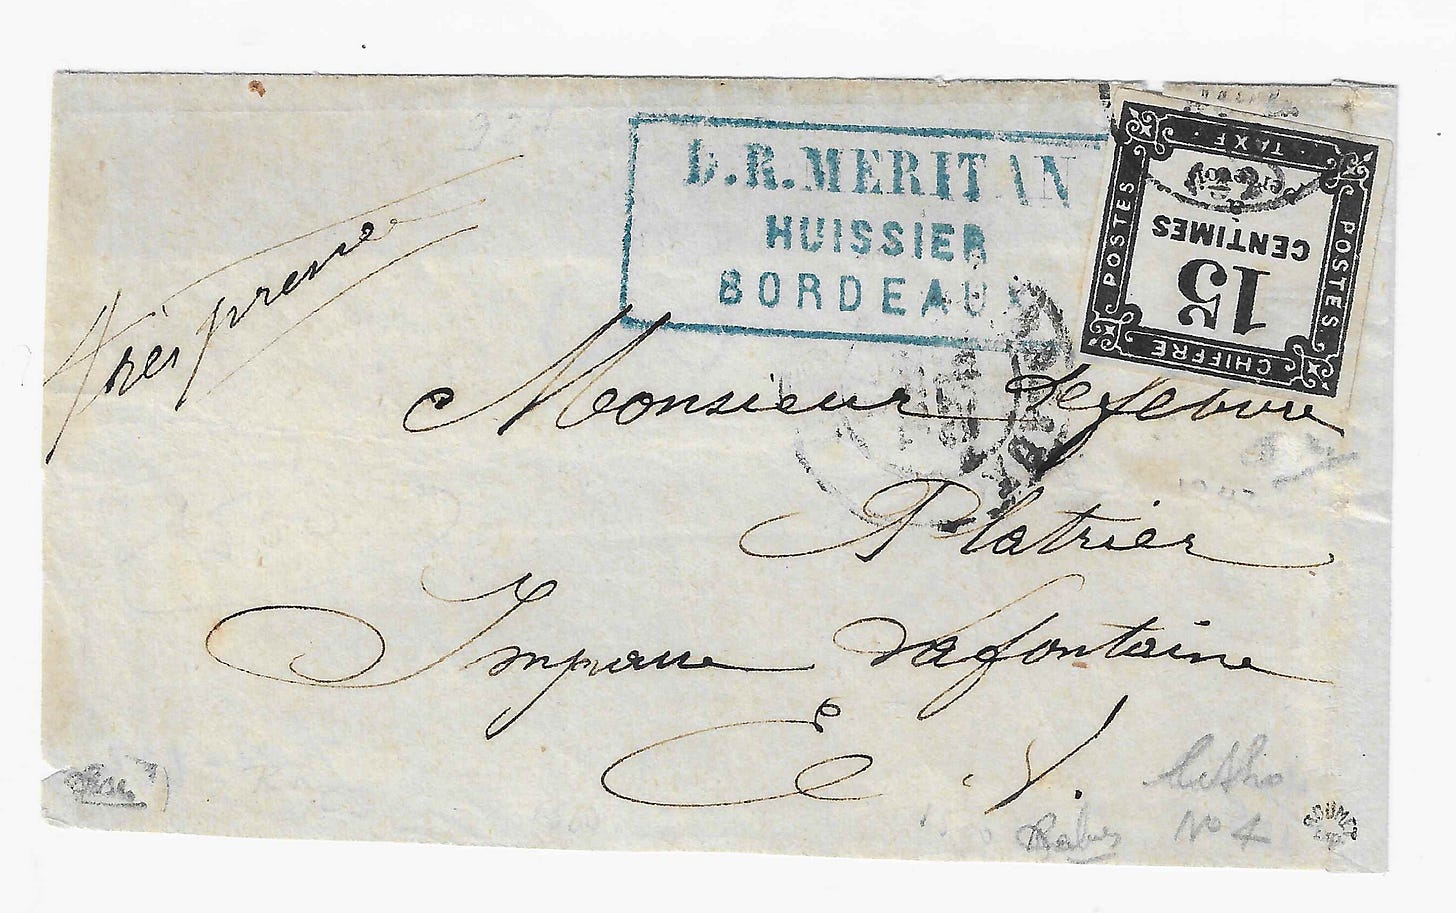 D.R. MERITAN
HUISSIER
BORDEAUX
très pressée
CHIFFRE
TAXE
POSTES
POSTES
15
CENTIMES
à percevoir
Monsieur Lefebvre
Platrier
Impasse Lafontaine
E. V.
Litho
No 4
ROUMET